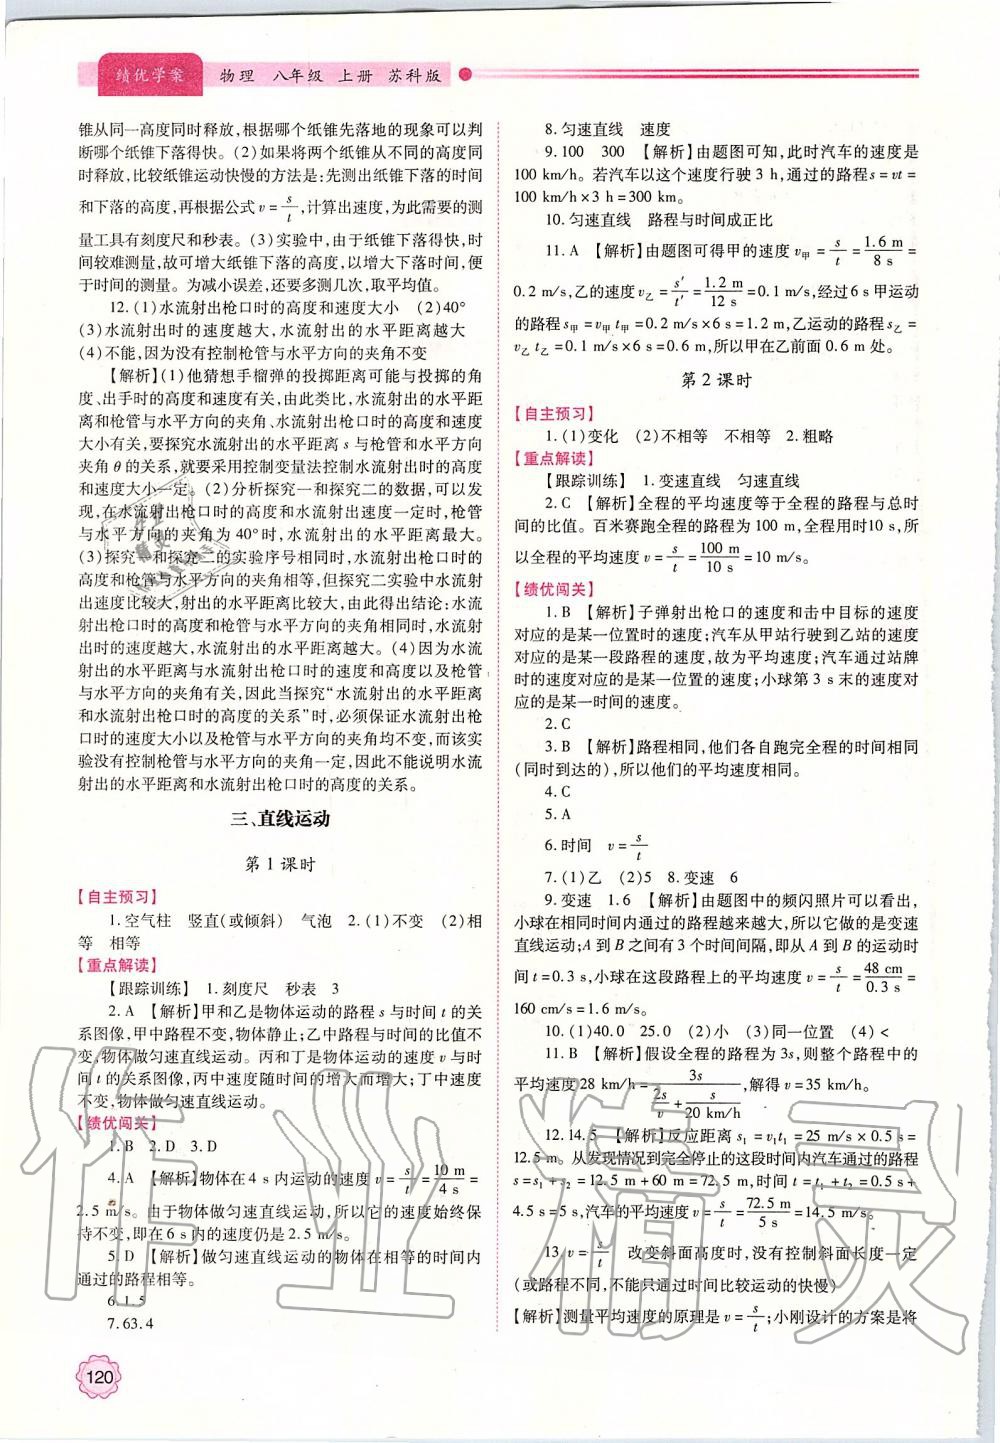 绩优学案 物理 八年级 上册 苏科版
锥从同一高度同时释放,根据哪个纸锥先落地的现象可以判
断哪个纸锥下落得快。(2)如果将两个纸锥从不同的高度同
时释放,比较纸锥运动快慢的方法是:先测出纸锥下落的时间
和下落的高度,再根据公式v=s/t,计算出速度,为此需要的测
量工具有刻度尺和秒表。(3)实验中,由于纸锥下落得快,时
间较难测量,故可增大纸锥下落的高度,以增大下落时间,便
于时间的测量。为减小误差,还要多测几次,取平均值。
12.(1)水流射出枪口时的高度和速度大小 (2)40°
(3)水流射出时的速度越大,水流射出的水平距离越大
(4)不能,因为没有控制枪管与水平方向的夹角不变
【解析】(1)他猜想手榴弹的投掷距离可能与投掷的角
度、出手时的高度和速度有关,由此类比,水流射出的水平距
离和枪管与水平方向的夹角、水流射出枪口时的高度和速度
大小有关,要探究水流射出的水平距离s与枪管和水平方向
夹角θ的关系,就要采用控制变量法控制水流射出时的高度
和速度大小一定。(2)分析探究一和探究二的数据,可以发
现,在水流射出枪口时的高度和水流射出速度一定时,枪管
与水平方向的夹角为40°时,水流射出的水平距离最大。
(3)探究一和探究二的实验序号相同时,水流射出枪口时的
高度和枪管与水平方向的夹角相等,但探究二实验中水流射
出速度比较大,射出的水平距离比较大,由此得出结论:水流
射出枪口时的高度和枪管与水平方向的夹角相同时,水流射
出时的速度越大,水流射出的水平距离越大。(4)因为水流
射出的水平距离与水流射出枪口时的速度和高度以及枪管
与水平方向的夹角有关,因此当探究“水流射出的水平距离
和水流射出枪口时的高度的关系”时,必须保证水流射出枪
口时的速度大小以及枪管与水平方向的夹角均不变,而该实
验没有控制枪管与水平方向的夹角一定,因此不能说明水流射
出的水平距离和水流射出枪口时的高度的关系。
三、直线运动
第1课时
【自主预习】
1.空气柱 竖直(或倾斜) 气泡 2.(1)不变 (2)相
等 相等
【重点解读】
【跟踪训练】 1.刻度尺 秒表 3
2.A 【解析】甲和乙是物体运动的路程s与时间t的关
系图像,甲中路程不变,物体静止;乙中路程与时间的比值不
变,物体做匀速直线运动。丙和丁是物体运动的速度v与时
间t的关系图像,丙中速度随时间的增大而增大;丁中速度
不变,物体做匀速直线运动。
【绩优闯关】
1.B 2.D 3.D
4.A 【解析】物体在4 s内运动的速度v=s/t=10 m/4 s=
2.5 m/s。由于物体做匀速直线运动,所以它的速度始终保
持不变,即在6 s内的速度仍是2.5 m/s。
5.D 【解析】做匀速直线运动的物体在相等的时间内
通过的路程相等。
6.1.5
7.63.4
8.匀速直线 速度
9.100 300 【解析】由题图可知,此时汽车的速度是
100 km/h。若汽车以这个速度行驶3 h,通过的路程s=vt=
100 km/h×3 h=300 km。
10.匀速直线 路程与时间成正比
11.A 【解析】由题图可得甲的速度v甲=s/t=1.6 m/8 s=
0.2 m/s,乙的速度v乙=s′/t′=1.2 m/12 s=0.1 m/s,经过6 s甲运动
的路程s甲=v甲t甲=0.2 m/s×6 s=1.2 m,乙运动的路程s乙=
v乙t乙=0.1 m/s×6 s=0.6 m,所以甲在乙前面0.6 m处。
第2课时
【自主预习】
1.(1)变化 (2)不相等 不相等 2.粗略
【重点解读】
【跟踪训练】 1.变速直线 匀速直线
2.C 【解析】全程的平均速度等于全程的路程与总时
间的比值。百米赛跑全程的路程为100 m,全程用时10 s,所
以全程的平均速度v=s/t=100 m/10 s=10 m/s。
【绩优闯关】
1.B 【解析】子弹射出枪口的速度和击中目标的速度
对应的是某一位置时的速度;汽车从甲站行驶到乙站的速度
对应的是某一段路程的速度,故为平均速度;汽车通过站牌
时的速度对应的是某一位置的速度;小球第3 s末的速度对
应的是某一时间的速度。
2.C
3.B 【解析】路程相同,他们各自跑完全程的时间相同
(同时到达的),所以他们的平均速度相同。
4.C
5.A
6.时间 v=s/t
7.(1)乙 (2)5 8.变速 6
9.变速 1.6 【解析】由题图中的频闪照片可以看出,
小球在相同时间内通过的路程越来越大,所以它做的是变速
直线运动;A到B之间有3个时间间隔,即从A到B的运动时
间t=0.3 s,小球在这段路程上的平均速度v=s/t=48 cm/0.3 s=
160 cm/s=1.6 m/s。
10.(1)40.0 25.0 (2)小 (3)同一位置 (4)<
11.B 【解析】假设全程的路程为3s,则整个路程中的
平均速度28 km/h=3s/(2s/v+s/20 km/h),解得v=35 km/h。
12.14.5 【解析】反应距离s₁=v₁t₁=25 m/s×0.5 s=
12.5 m。从发现情况到完全停止的这段时间内汽车通过的路程
s=s₁+s₂=12.5 m+60 m=72.5 m,时间t=t₁+t₂=0.5 s+
4.5 s=5 s,汽车的平均速度v=s/t=72.5 m/5 s=14.5 m/s。
13.v=s/t 改变斜面高度时,没有控制斜面长度一定
(或路程不同,不能只通过时间比较运动的快慢)
【解析】测量平均速度的原理是v=s/t;小刚设计的方案是将
120
作业精灵